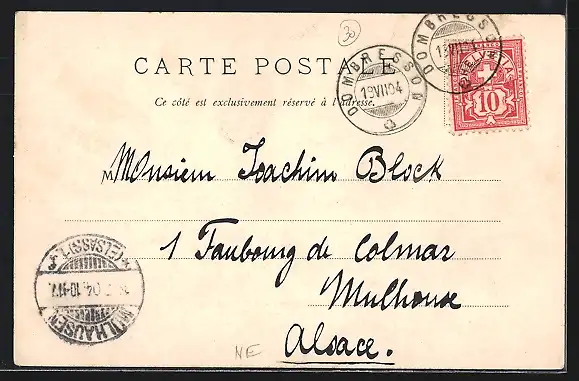 30
DOMBRESSON
19 VII 04
DOMBRESSON
HELVETIA
10
CARTE POSTALE
Ce côté est exclusivement réservé à l'adresse.
Monsieur Joachim Block
1 Faubourg de Colmar
Mulhouse
Alsace.
MÜLHAUSEN
(ELSASS)
04.10-11V.
NE